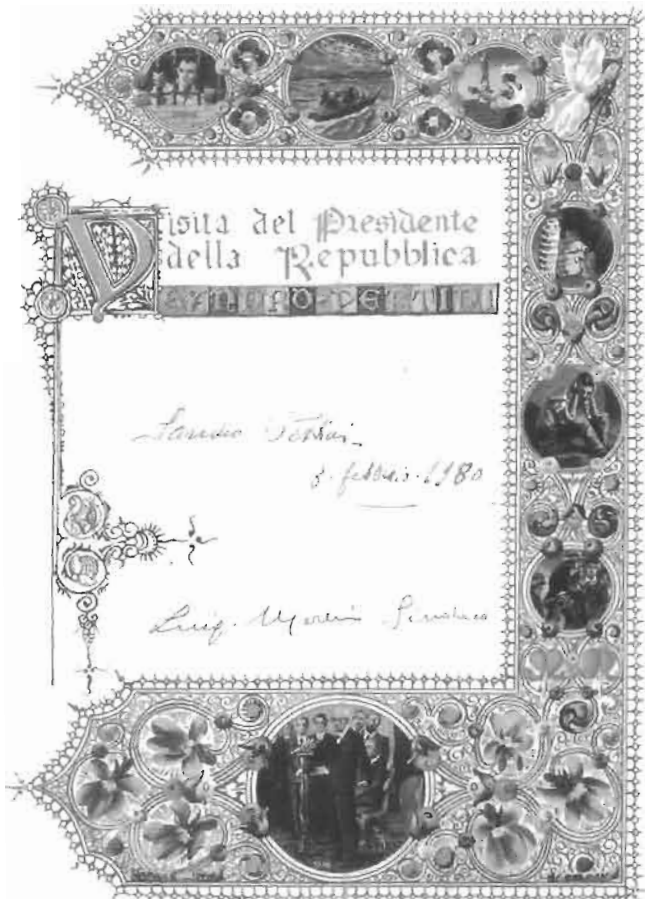 Visita del Presidente
della Repubblica
SANDRO PERTINI
Sandro Pertini
8 febbraio 1980
Luigi Martini Sindaco